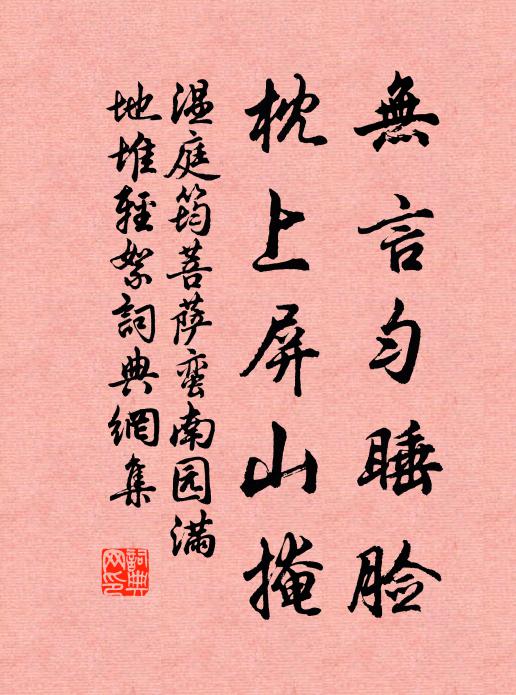 無言匀睡脸
枕上屏山掩
温庭筠菩萨蛮南园满
地堆轻絮詞典網集
詞典网印